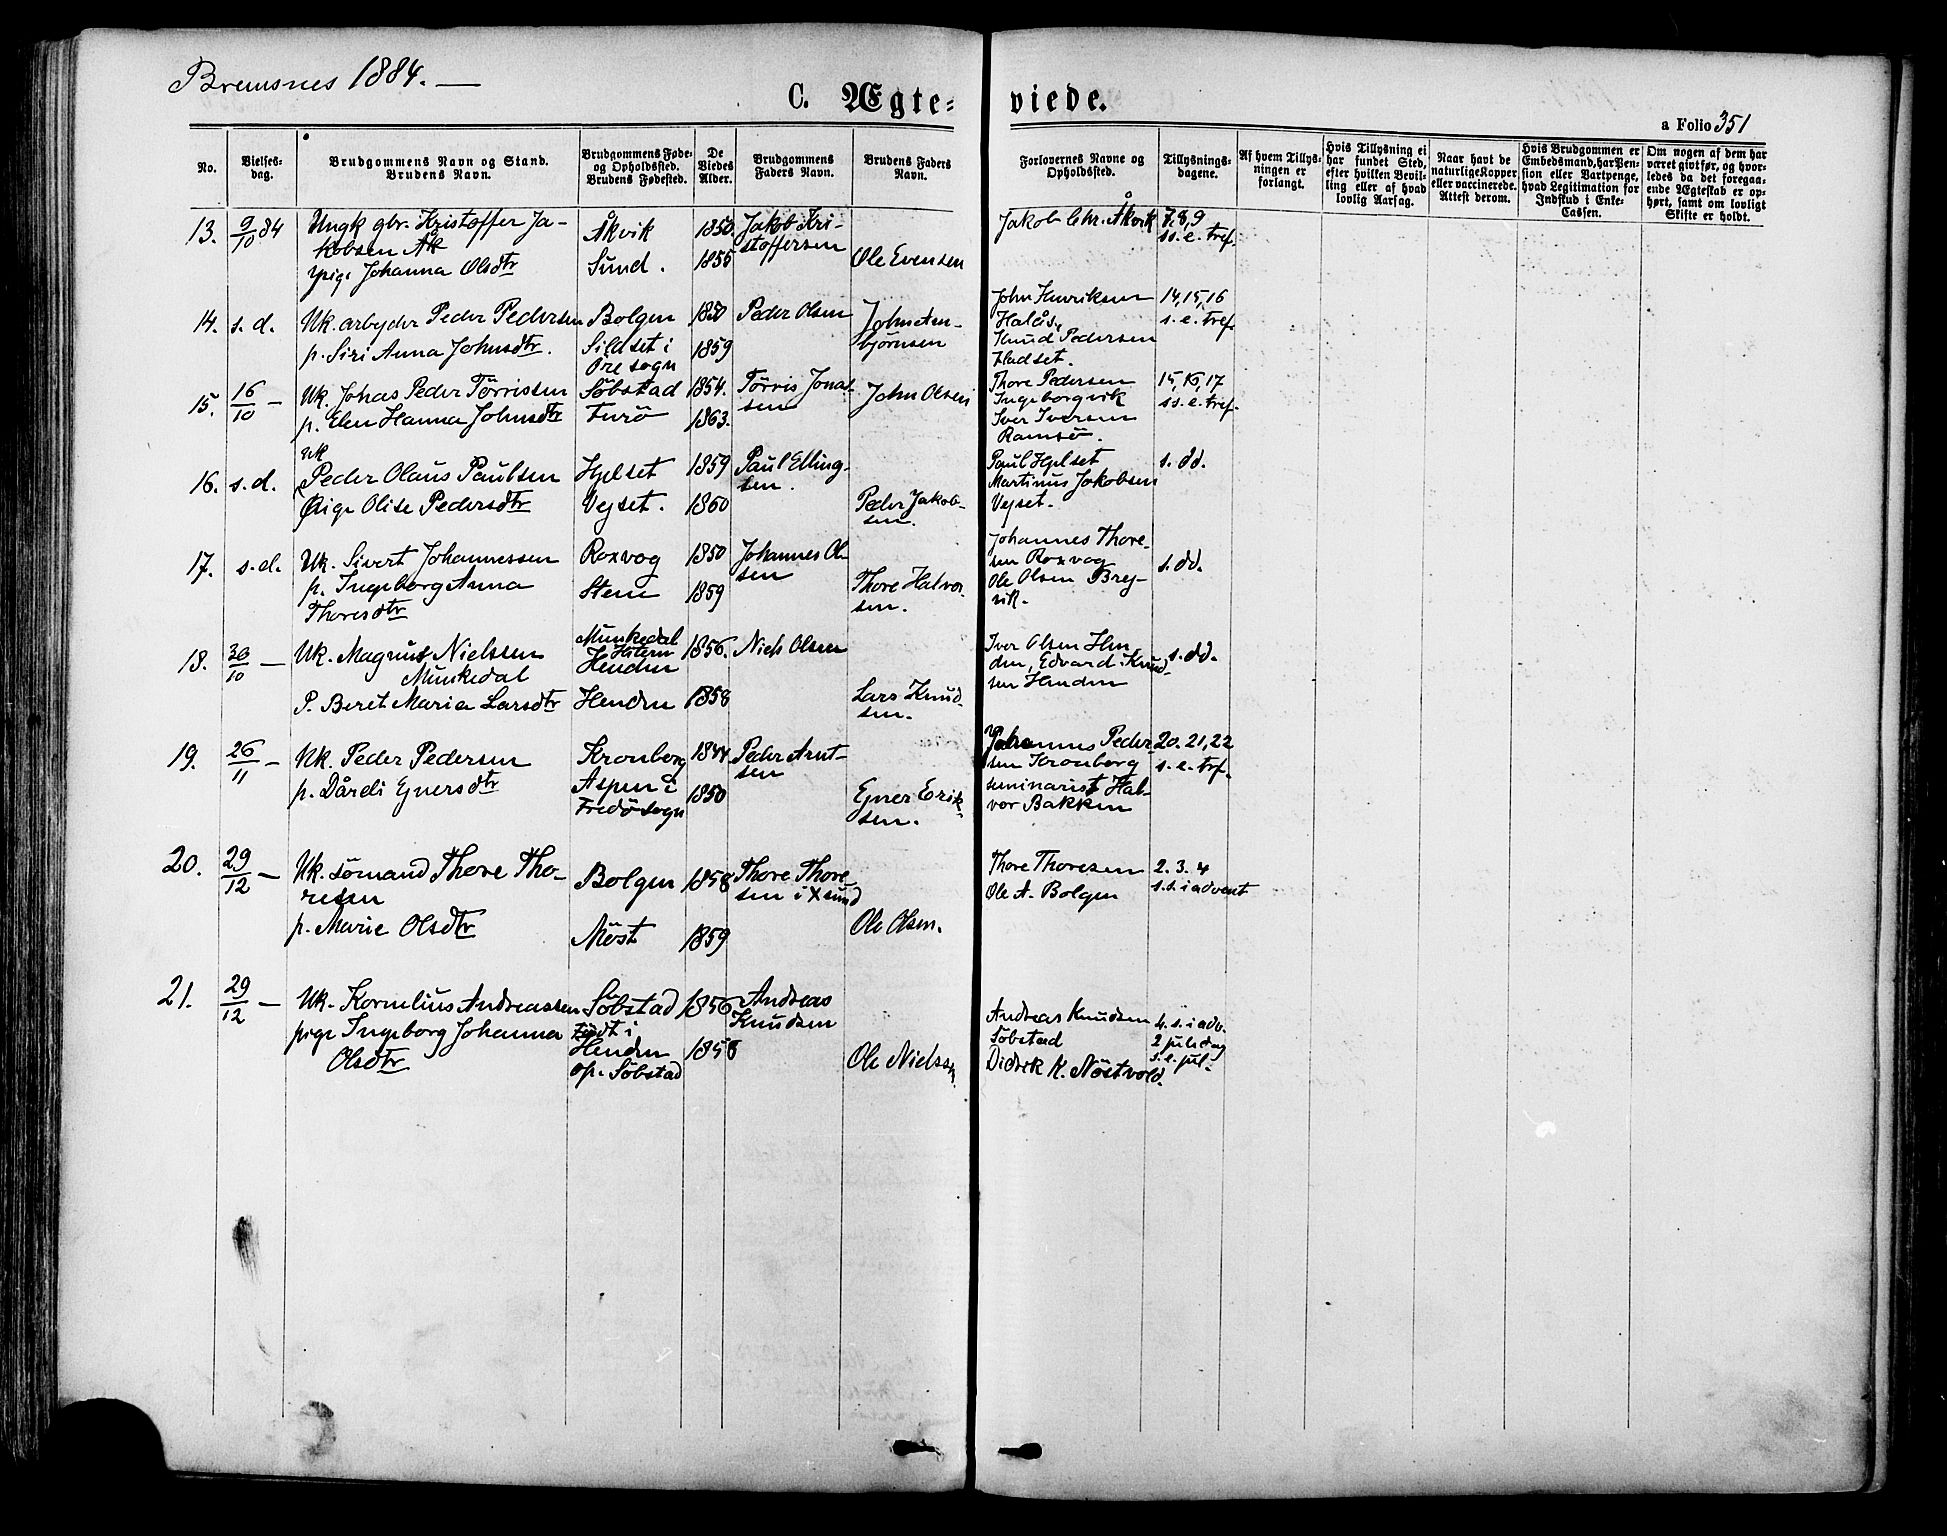 Bremsnes 1884. —
C. Ægte- viede.
a Folio 351
No.
Vielses-
dag.
Brudgommens Navn og Stand.
Brudens Navn.
Brudgommens Føde-
og Opholdssted.
Brudens Fødested.
De
Viedes
Alder.
Brudgommens
Faders Navn.
Brudens Faders
Navn.
Forlovernes Navne og
Opholdssted.
Tillysnings-
dagene.
Af hvem Tillys-
ningen er
forlangt.
Hvis Tillysning ei
har fundet Sted,
efter hvilken Bevil-
ling eller af hvad
lovlig Aarsag.
Naar havt de
naturlige Kopper
eller vaccinerede.
Attest derom.
Hvis Brudgommen er
Embedsmand, har Pen-
sion eller Vartpenge,
hvad Legitimation for
Indskud i Enke-
Cassen.
Om nogen af dem har
været gift før, og hvor-
ledes da det foregaa-
ende Ægteskab er op-
hørt, samt om lovligt
Skifte er holdt.
13. 9/10 84
Ungk gbr. Kristoffer Ja-
kobsen Åk
pige Johanna Olsdtr
Åkvik
Sund.
1850.
1855
Jakob Kri-
stoffersen
Ole Evensen
Jakob Chr. Åkvik
7,8,9
ss. e. tref.
14. s. d.
Uk. arbejder Peder Pedersen
p. Siri Anna Johnsdtr.
Bolgen
Sildset i
Øre sogn
1850
1859
Peder Olsen
John
bjørnsen
John Henriksen
Halås,
Knud Pedersen
Hadset.
14, 15, 16
s. e. tref.
15. 16/10 —
Uk. Johas Peder Tørrissen
p. Elen Hanna Johnsdtr
Søbstad
Furö
1854.
1863.
Tørris Jonas-
sen
John Olsen
Thore Pedersen
Ingeborgvik
Iver Iversen
Ramsö.
15, 16, 17
ss. e. tref.
16. s. d.
uk
Peder Olaus Paulsen
Pige Olise Pedersdtr
Hjelset
Vejset.
1859
1860
Paul Elling-
sen.
Peder Jakob-
sen.
Paul Hjelset
Martinus Jakobsen
Vejset.
s. dd.
17. s. d.
Uk. Sivert Johannessen
p. Ingeborg Anna
Thoresdtr
Roxvog
Stene
1850
1859
Johannes Ol-
sen
Thore Halvor-
sen.
Johannes Thore-
sen Roxvog
Ole Olsen Brej-
vik.
s. dd.
18. 30/10 —
Uk. Magnus Nielssen
Munkedal
P. Beret Maria Larsdtr
Munkedal
Henden
Henden
1856.
1858
Niels Olsen
Lars Knud-
sen.
Iver Olsen Hen-
den, Edvard Knud-
sen Henden
s. dd.
19. 26/11 —
Uk. Peder Pedersen
p. Dårdi Ejnersdtr
Kronberg
Aspen i
Fredø sogn
1844
1850
Peder Arnt-
sen
Ejner Erik-
sen.
Johannes Peder-
sen Kronborg
seminarist Hal-
vor Bakken
20. 21, 22
s. e. tref.
20. 29/12 —
Uk. sömand Thore Tho-
resen
p. Marie Olsdtr
Bolgen
Möst
1858
1859
Thore Thore-
sen i X sund
Ole Olsen.
Thore Thoresen
Ole A. Bolgen
2. 3. 4
s. s. i advent
21. 29/12 —
Uk. Kornelius Andreassen
pige Ingeborg Johanna
Olsdtr
Söbstad
Födt i
Henden
op. Söbstad
1856
1858
Andreas
Knudsen
Ole Nielsen
Andreas Knudsen
Söbstad
Didrik K. Nöstvold.
4. s. i adv.
2 juledag
s. e. jul.